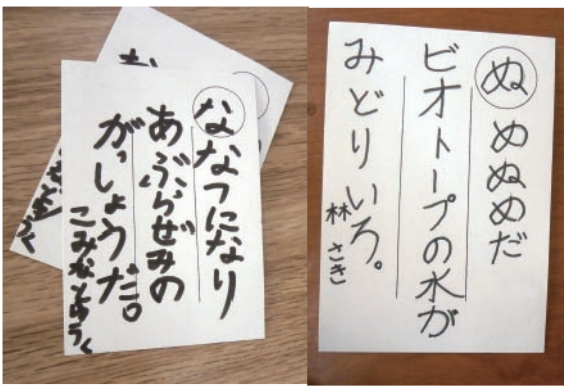 ななつになり
あぶらぜみの
がっしょうだ。
こみなとゆうく
ぬめぬめだ
ビオトープの水が
みどりいろ。
林さき